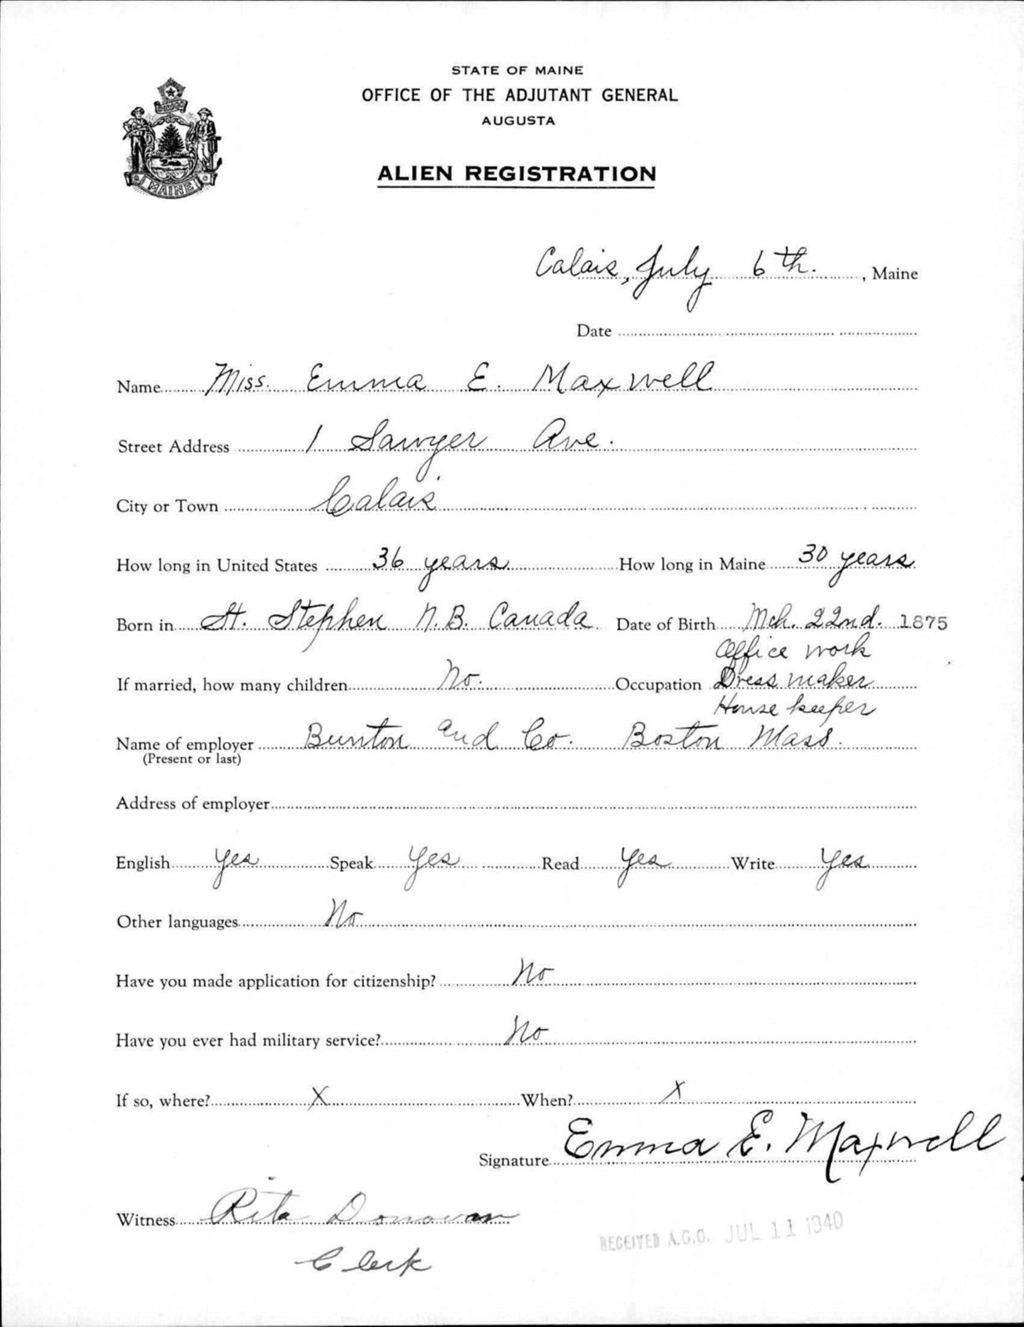 STATE OF MAINE
OFFICE OF THE ADJUTANT GENERAL
AUGUSTA
ALIEN REGISTRATION
MAINE
Calais, July 6th. , Maine
Date
Name Miss. Emma E. Maxwell
Street Address 1 Sawyer Ave.
City or Town Calais
How long in United States 36 years How long in Maine 30 years
Born in St. Stephen N.B. Canada Date of Birth Mch. 22nd. 1875
Office work
If married, how many children No. Occupation Dress maker
House keeper
Name of employer Bunton and Co. Boston Mass.
(Present or last)
Address of employer
English Yes Speak Yes Read Yes Write Yes
Other languages No
Have you made application for citizenship? No
Have you ever had military service? No
If so, where? X When? X
Signature Emma E. Maxwell
Witness Rita Donovan
Clerk
RECEIVED A.G.O. JUL 11 1940